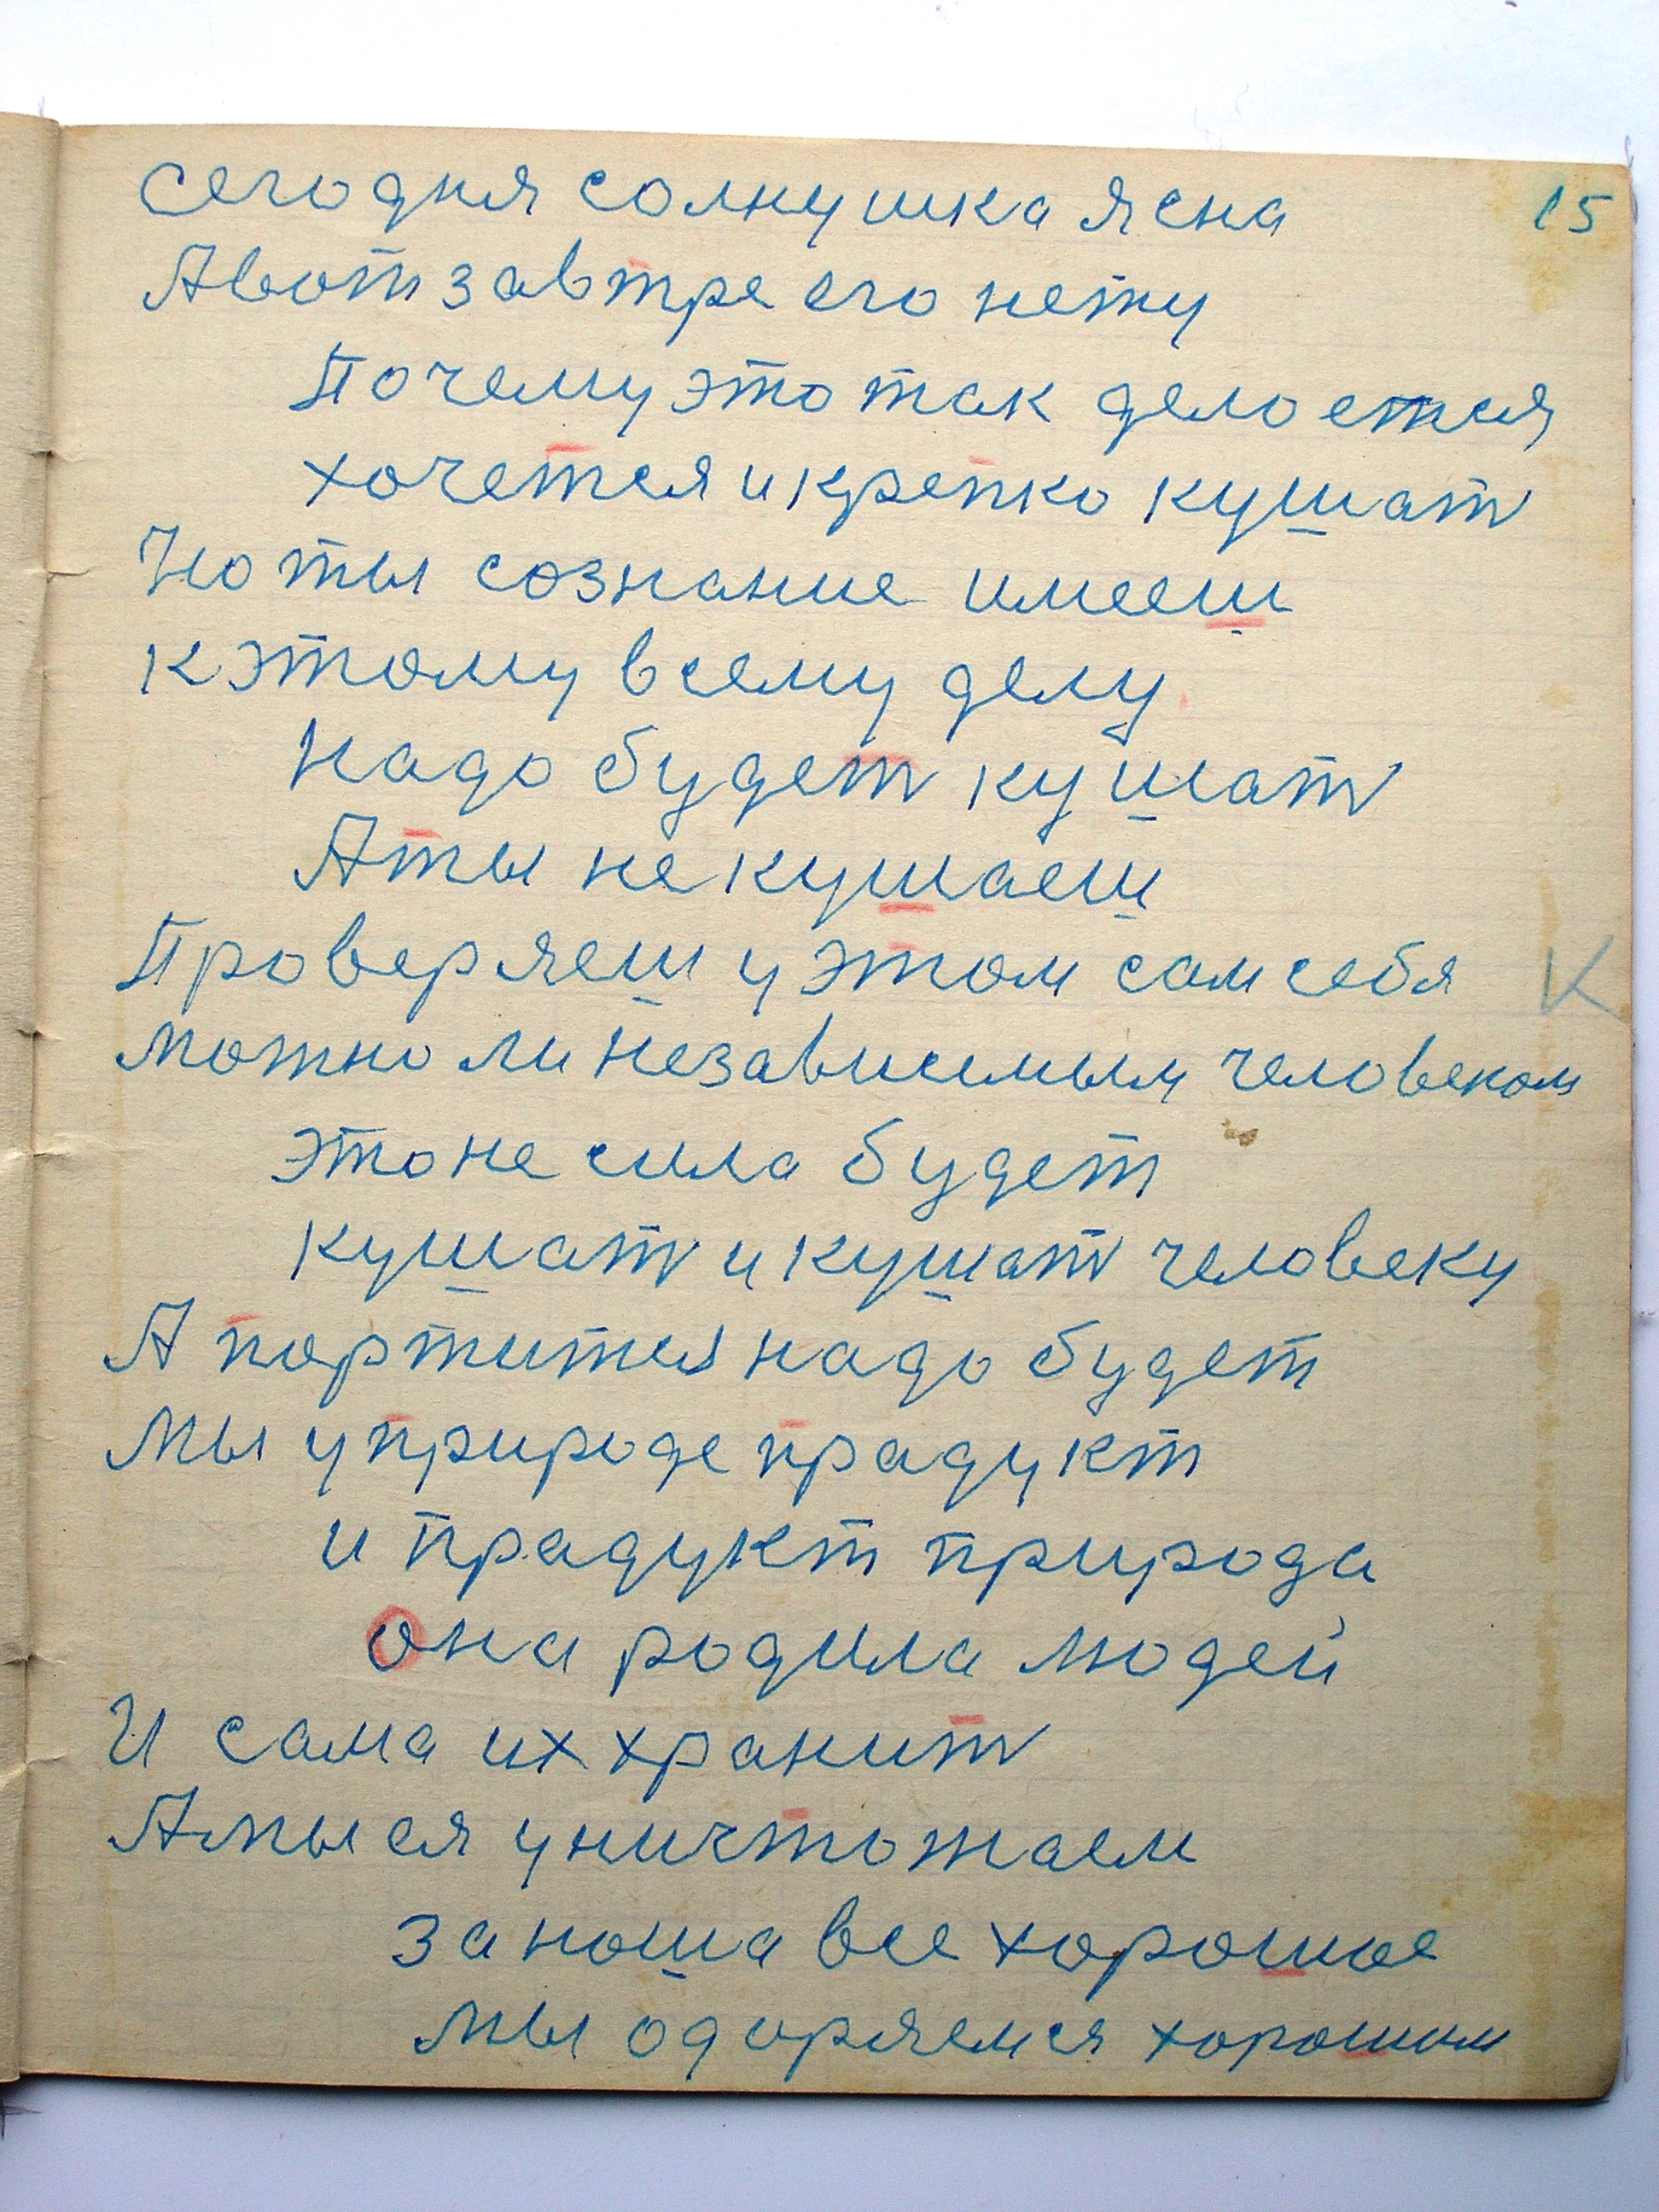 15
сегодня солнушка ясна
А вот завтре его нету
Почему это так делоется
хочется и крепко кушат
Но ты сознание имееш
к этому всему делу
Надо будет кушат
А ты не кушаеш
Проверяеш у этом сам себя
К
Можно ли независимым человеком
это не сила будет
кушат и кушат человеку
А портится надо будет
Мы у природе прадукт
и прадукт природа
она родила людей
И сама их хранит
А мы ея уничтожаем
за наша все хорошое
мы одоряемся хорошим